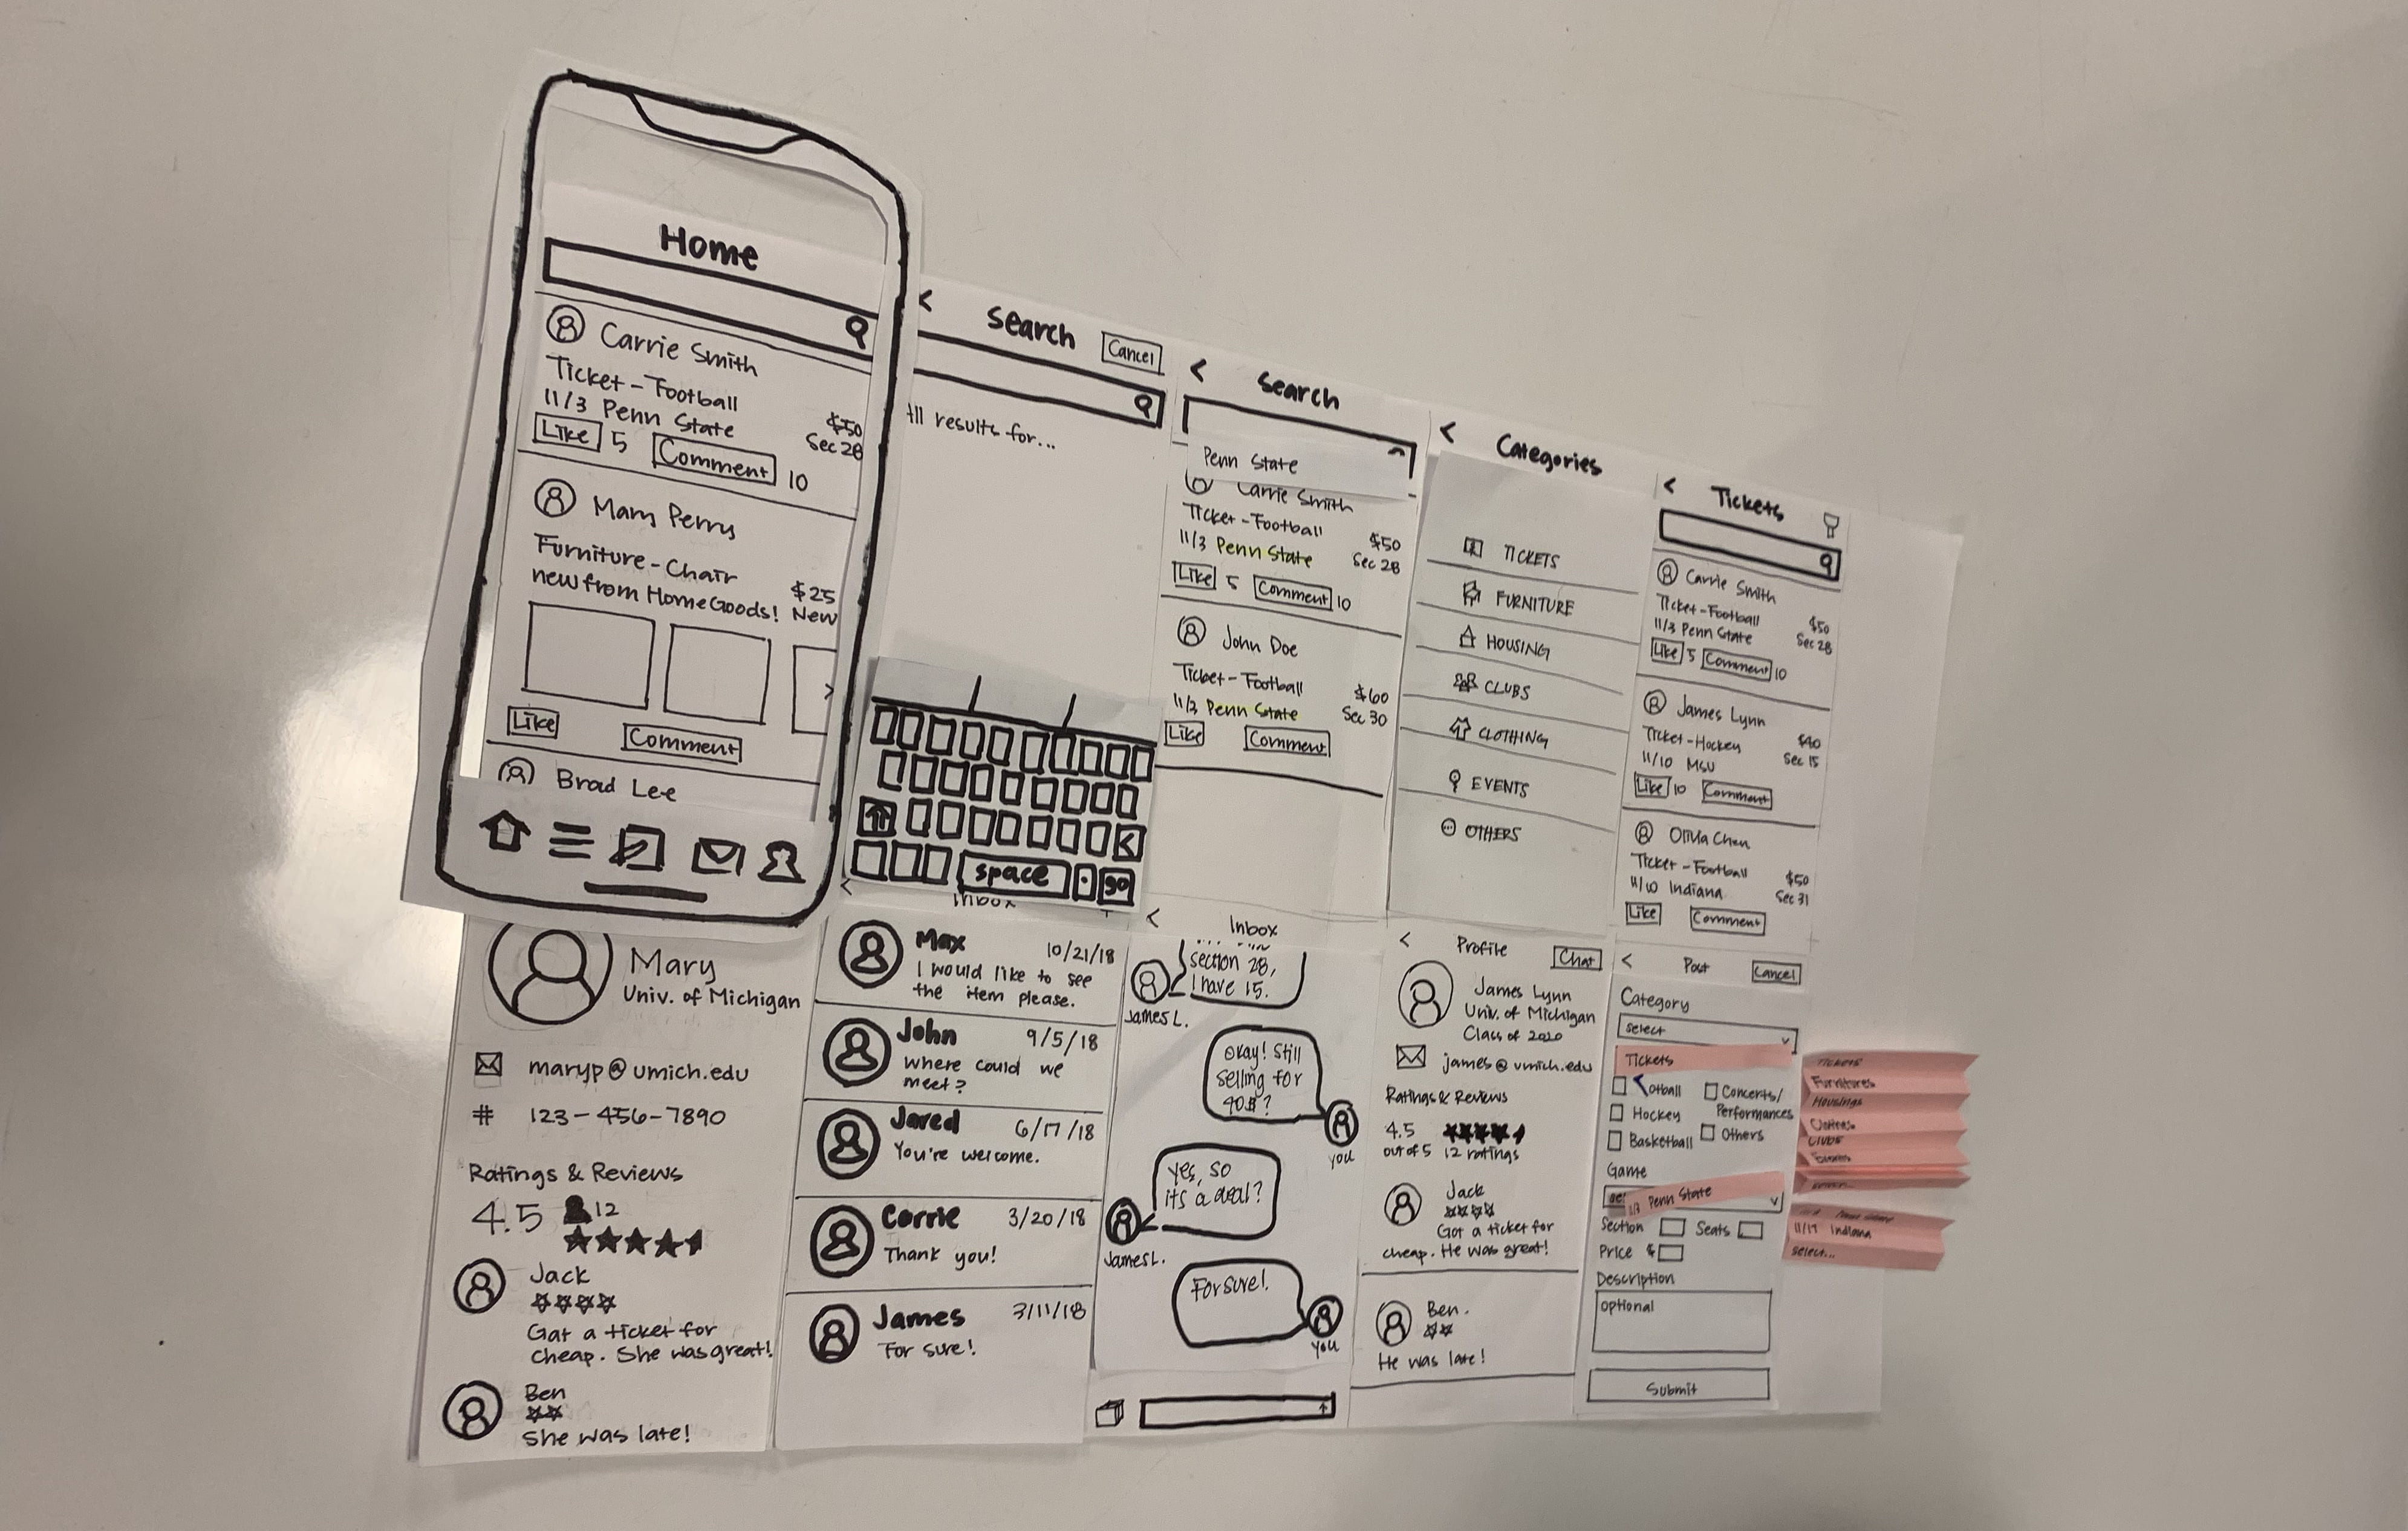 Home
Carrie Smith
Ticket - Football
11/3 Penn State
$50
Sec 28
Like 5 Comment 10
Mary Perry
Furniture - Chair
new from HomeGoods!
$25
New
>
Like Comment
Brad Lee
< Search Cancel
All results for...
space . go
< Search
Penn State
Carrie Smith
Ticket - Football $50
11/3 Penn State Sec 28
Like 5 Comment 10
John Doe
Ticket - Football $60
11/3 Penn State Sec 30
Like Comment
< Categories
TICKETS
FURNITURE
HOUSING
CLUBS
CLOTHING
EVENTS
OTHERS
< Tickets
Carrie Smith
Ticket - Football $50
11/3 Penn State Sec 28
Like 5 Comment 10
James Lynn
Ticket - Hockey $40
11/10 MSU Sec 15
Like 10 Comment
Olivia Chen
Ticket - Football $50
11/10 Indiana Sec 31
Like Comment
Mary
Univ. of Michigan
maryp@umich.edu
# 123-456-7890
Ratings & Reviews
4.5 12
Jack
Got a ticket for
cheap. She was great!
Ben
She was late!
< Inbox
Max 10/21/18
I would like to see
the item please.
John 9/5/18
where could we
meet?
Jared 6/17/18
You're welcome.
Carrie 3/20/18
Thank you!
James 3/11/18
For sure!
< Inbox
section 28,
I have 15.
James L.
Okay! Still
selling for
40$?
you
yes, so
it's a deal?
James L.
For sure!
you
< Profile Chat
James Lynn
Univ. of Michigan
Class of 2020
james@umich.edu
Ratings & Reviews
4.5
out of 5 12 ratings
Jack
Got a ticket for
cheap. He was great!
Ben.
He was late!
< Post Cancel
Category
select
Tickets
Football
Concerts/
Performances
Hockey
Basketball
Others
Game
Penn State
Section Seats
Price $
Description
optional
Submit
TICKETS
Furnitures
Housings
Clubs
11/17 Indiana
select...